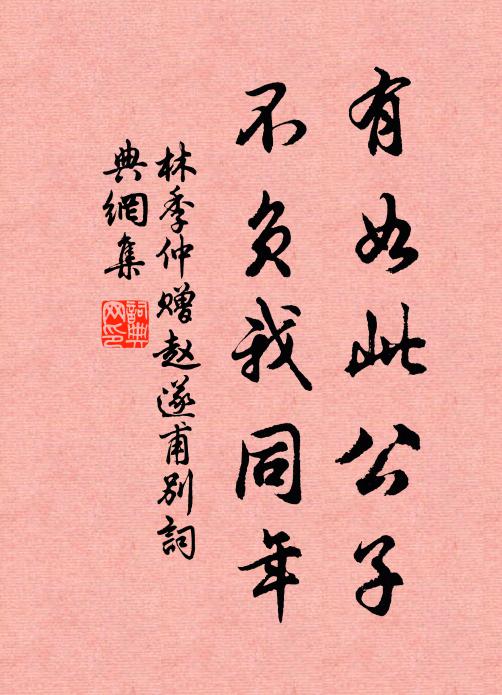 有如此公子
不負我同年
林季仲赠赵遂甫别詞
典網集
詞典
网印